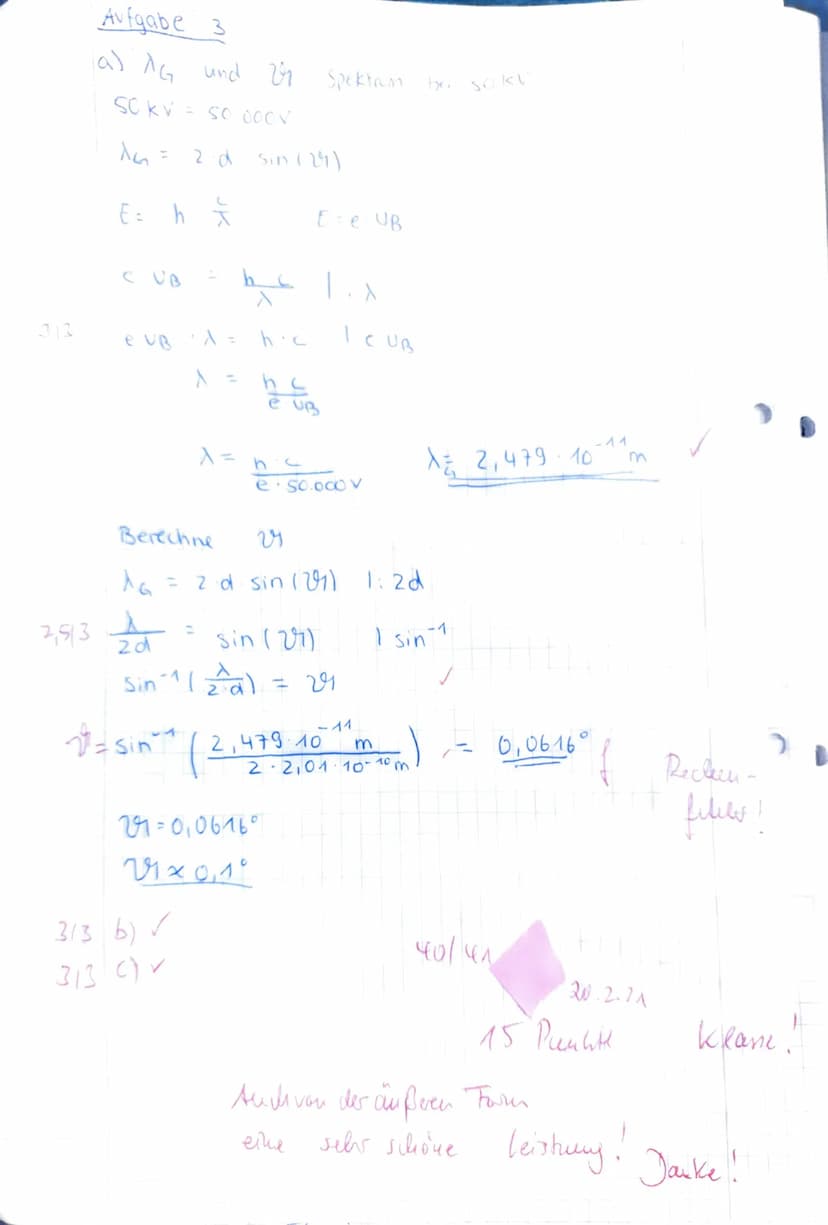 Aufgabe 3
a) λG und ϑ Spektrum bei 50kV
50 kV = 50 000V
λG = 2 d sin(ϑ)
E = h c/λ E = e UB
e UB = h c/λ | · λ
3/3 e UB · λ = h · c | e UB
λ = h c/e UB
λ = h · c/e · 50.000V λG = 2,479 · 10^-11 m ✓
Berechne ϑ
λG = 2 d sin(ϑ) | : 2d
2,5/3 λ/2d = sin(ϑ) | sin^-1
sin^-1 (λ/2·d) = ϑ ✓
ϑ = sin^-1 (2,479·10^-11 m/2 · 2,01 · 10^-10 m) = 0,0616° f Rechen-
fehler!
ϑ = 0,0616°
ϑ ≈ 0,1°
3/3 b) ✓
3/3 c) ✓
40/41
20.2.21
15 Punkte Klasse!
Auch von der äußeren Form
eine sehr schöne Leistung! Danke!